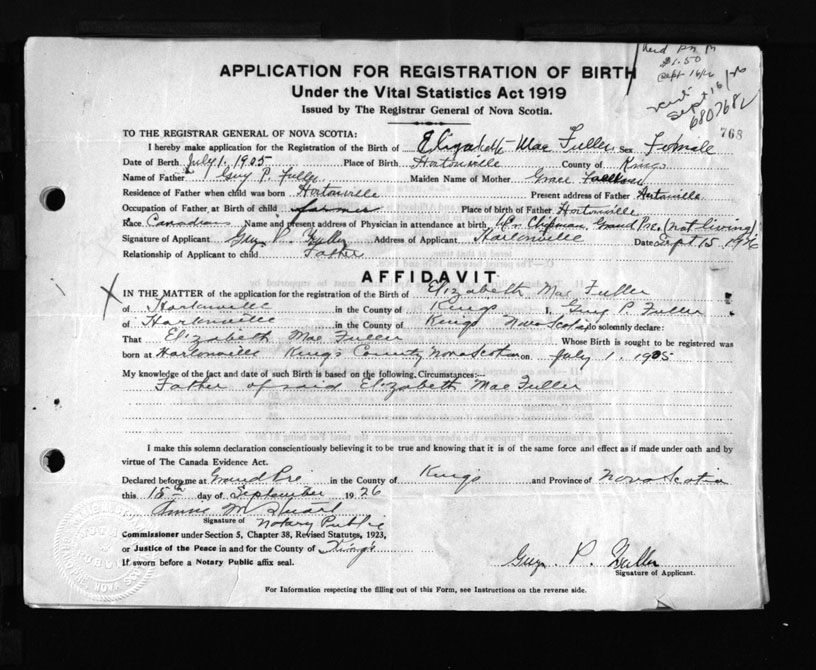 $1.50
Sept 16/26
Sept 16/26
680768
APPLICATION FOR REGISTRATION OF BIRTH
Under the Vital Statistics Act 1919
Issued by The Registrar General of Nova Scotia.
768
TO THE REGISTRAR GENERAL OF NOVA SCOTIA:
I hereby make application for the Registration of the Birth of Elizabeth Mae Fuller Sex Female
Date of Birth July 1. 1905 Place of Birth Hortonville County of Kings
Name of Father Guy P. Fuller Maiden Name of Mother Grace Faulkner
Residence of Father when child was born Hortonville Present address of Father Hortonville
Occupation of Father at Birth of child farmer Place of birth of Father Hortonville
Race Canadian Name and present address of Physician in attendance at birth Dr Chipman, Grand Pre. (not living)
Signature of Applicant Guy P. Fuller Address of Applicant Hortonville Date Sept 15, 1926
Relationship of Applicant to child Father
AFFIDAVIT
IN THE MATTER of the application for the registration of the Birth of Elizabeth Mae Fuller
X of Hortonville in the County of Kings I, Guy P. Fuller
of Hortonville in the County of Kings Nova Scotia do solemnly declare:
That Elizabeth Mae Fuller Whose Birth is sought to be registered was
born at Hortonville King's County Nova Scotia on July 1. 1905
My knowledge of the fact and date of such Birth is based on the following Circumstances:—
Father of said Elizabeth Mae Fuller
I make this solemn declaration conscientiously believing it to be true and knowing that it is of the same force and effect as if made under oath and by
virtue of The Canada Evidence Act.
Declared before me at Grand Pré in the County of Kings and Province of Nova Scotia
this 15th day of September 1926
Annie M Stuart
Signature of Notary Public
Commissioner under Section 5, Chapter 38, Revised Statutes, 1923,
or Justice of the Peace in and for the County of King's
If sworn before a Notary Public affix seal.
Guy P. Fuller
Signature of Applicant.
For Information respecting the filling out of this Form, see Instructions on the reverse side.